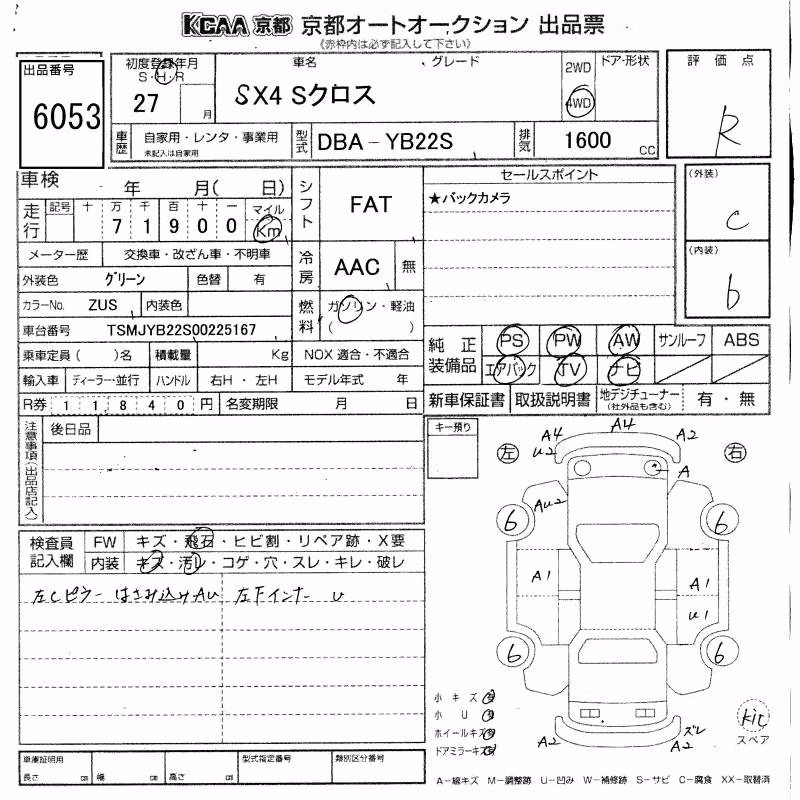 KCAA 京都 京都オートオークション 出品票
《赤枠内は必ず記入して下さい》
出品番号
6053
初度登録年月
S・H・R
27 月
車名
グレード
SX4 Sクロス
2WD
4WD
ドア・形状
評価点
R
車歴
自家用・レンタ・事業用
未記入は自家用
型式
DBA-YB22S
排気
1600 CC
車検 年 月( 日)
シフト
FAT
セールスポイント
★バックカメラ
(外装)
C
(内装)
b
走行
記号 十 万 千 百 十 一
7 1 9 0 0
マイル
Km
メーター歴 交換車・改ざん車・不明車
冷房
AAC
無
外装色 グリーン 色替 有
カラーNo. ZUS 内装色
燃料
ガソリン・軽油
( )
車台番号 TSMJYB22S00225167
乗車定員 ( )名 積載量 Kg NOX 適合・不適合
輸入車 ディーラー・並行 ハンドル 右H・左H モデル年式 年
R券 1 1 8 4 0 円 名変期限 月 日
純正装備品
PS PW AW サンルーフ ABS
エアバック TV ナビ
新車保証書 取扱説明書 地デジチューナー
(社外品も含む)
有・無
注意事項(出品店記入)
後日品
キー預り
検査員記入欄
FW キズ・飛石・ヒビ割・リペア跡・X要
内装 キズ・汚レ・コゲ・穴・スレ・キレ・破レ
左Cピラー はさみ込みAU 左下インナー U
左
右
A4
U2
A4
A2
A
AU2
6
6
A1
A1
U1
6
6
A2
ズレ
A2
小キズ
小U
ホイールキズ
ドアミラーキズ
kit
スペア
車庫証明用
長さ cm 幅 cm 高さ cm
型式指定番号
類別区分番号
A-線キズ M-調整跡 U-凹み W-補修跡 S-サビ C-腐食 XX-取替済